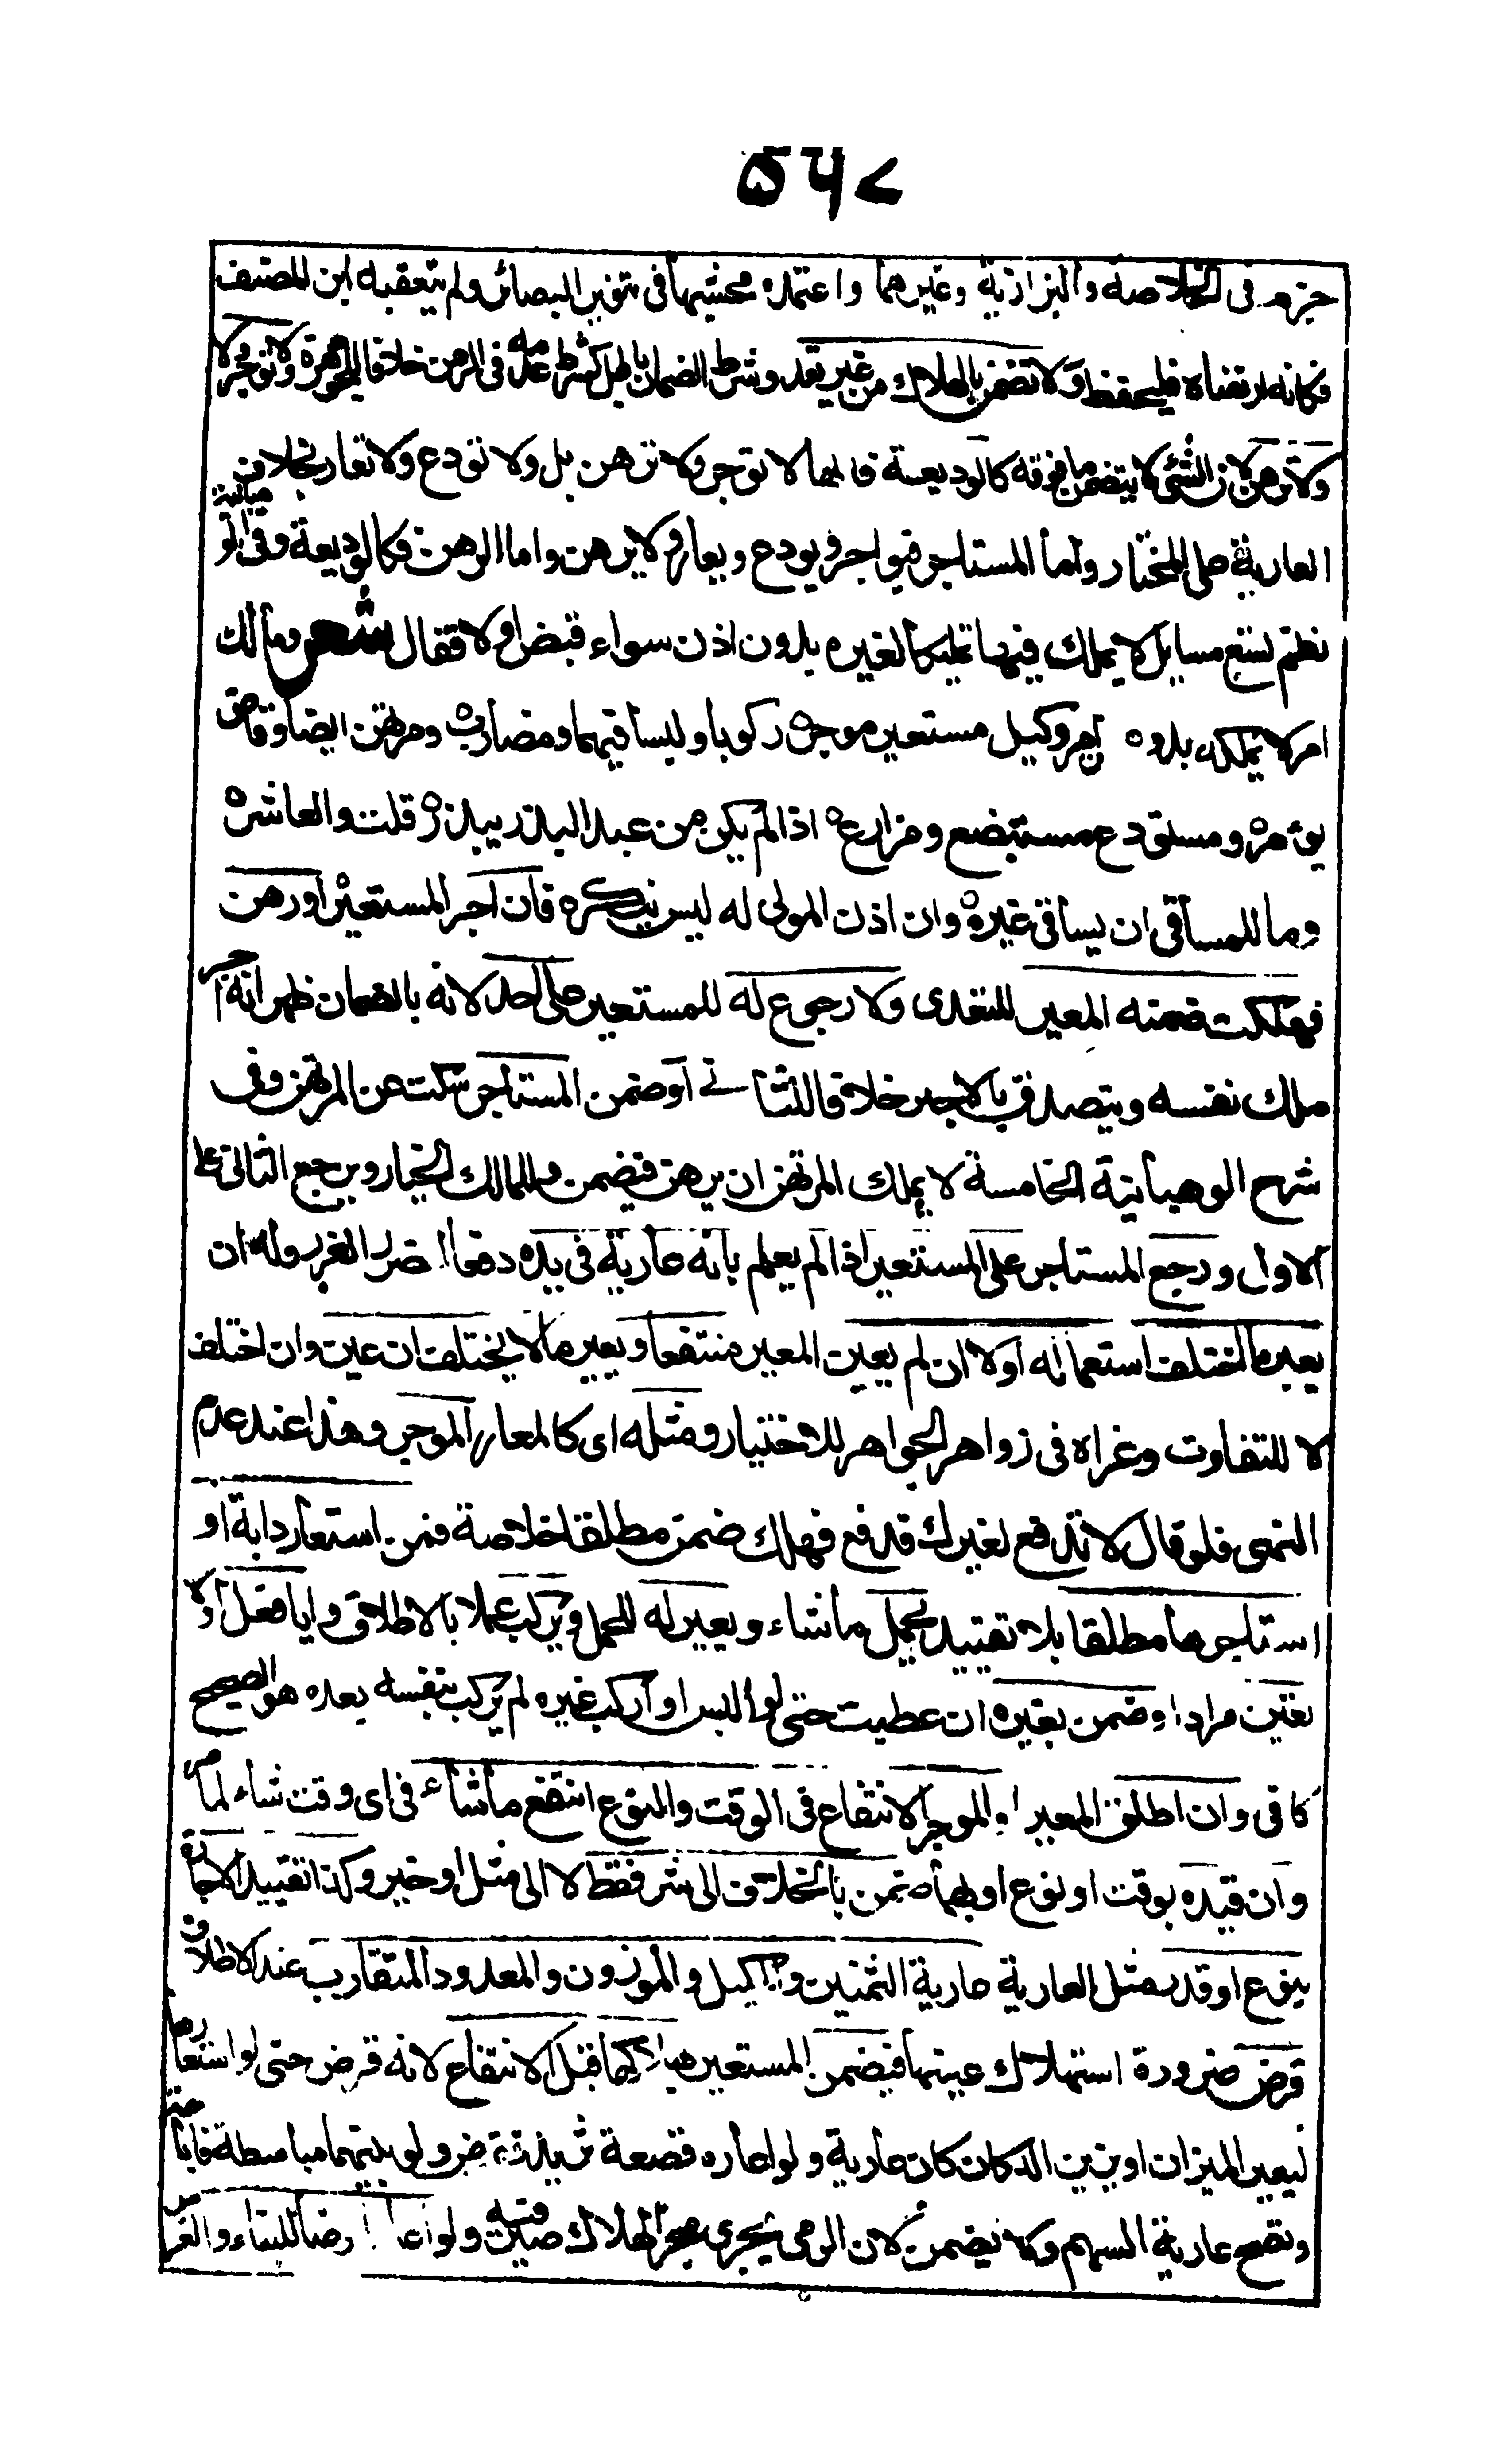 ٥٦٧
جزم فى الخلاصة والبزازية وغيرهما واعتمده محشيها فى تنوير البصائر ولم يتعقبه ابن المصنف
فكانه ارتضاه فليحفظ ولا تضمن بالهلاك من غير تعد وشرط الضمان باطل كشرط عدمه فى الرهن خلافا للجوهرة ولا توجر ولا
ولا ترهن لان الشئ لا يتضمن ما فوقه كالوديعة فانها لا توجر ولا ترهن بل ولا تودع ولا تعار بخلاف
العارية على المختار واما المستاجر فيواجر ويودع ويعار ولا يرهن واما الرهن فكالوديعة وفى الوهبانية
نظم تسع مسايل لا يملك فيها تمليكا لغيره بدون اذن سواء قبض اولا فقال شعر ومالك
امر لا يملكه بدون امر وكيل مستعير موجر ركوبا ولبسا فيهما ومضارب ومرتهن ايضا وقاض
يؤمره ومستودع مستبضع ومزارع اذا لم يكن من عبد البذر يبذر قلت والعاشره
وما للمساقى ان يساقى غيره وان اذن المولى له ليس ينكره فان اجر المستعير او رهن
فهلكت ضمنه المعير للتعدى ولا رجوع له للمستعير على احد لانه بالضمان ظهر انه اجر
ملك نفسه ويتصدق بالاجير خلافا للثانے او ضمن المستاجر سكت عن المرتهن وفى
شرح الوهبانية الخامسة لا يملك المرتهن ان يرهن فيضمن وللمالك الخيار ويرجع الثانى على
الاول ورجع المستاجر على المستعير اذا لم يعلم بانه عارية فى يده دفعا لضرر الغرر وله ان
يعير ما اختلف استعماله اولا ان لم يعين المعير منتفعا ويعير ما لا يختلف ان عين وان اختلف
لا للتفاوت وعزاه فى زواهر الجواهر للاختيار ومثله اى كالمعار الموجر وهذا عند عدم
النهى فلو قال لا تدفع لغيرك فدفع فهلك ضمن مطلقا خلاصة فمن استعار دابة او
استاجرها مطلقا بلا تقييد يحمل ما شاء ويعير له للحمل ويركب عملا بالاطلاق وايا فعل اولا
تعين مرادا وضمن بغيره ان عطبت حتى لو البس او اركب غيره لم يركب بنفسه بعده هو الصحيح
كافى وان اطلق المعير او الموجر الانتفاع فى الوقت والنوع انتفع ما شاء فى اى وقت شاء لما مر
وان قيده بوقت او نوع او بهما ضمن بالخلاف الى شر فقط لا الى مثل او خير وكذا تقييد الاجارة
بنوع او قدر مثل العارية عارية الثمنين والمكيل والموزون والمعدود المتقارب عند الاطلاق
قرض ضرورة استهلاك عينها فيضمن المستعير هلاكها قبل الانتفاع لانه قرض حتى لو استعارها
ليعير الميزان او يزين الدكان كان عارية ولو اعاره قصعة ثريد فقرض ولو بينهما مباسطة فاباحة
وتصح عارية السهم ولا يضمن لان الرمى يجرى مجرى الهلاك صيرفية ولو اعار ارضا للبناء والغرس